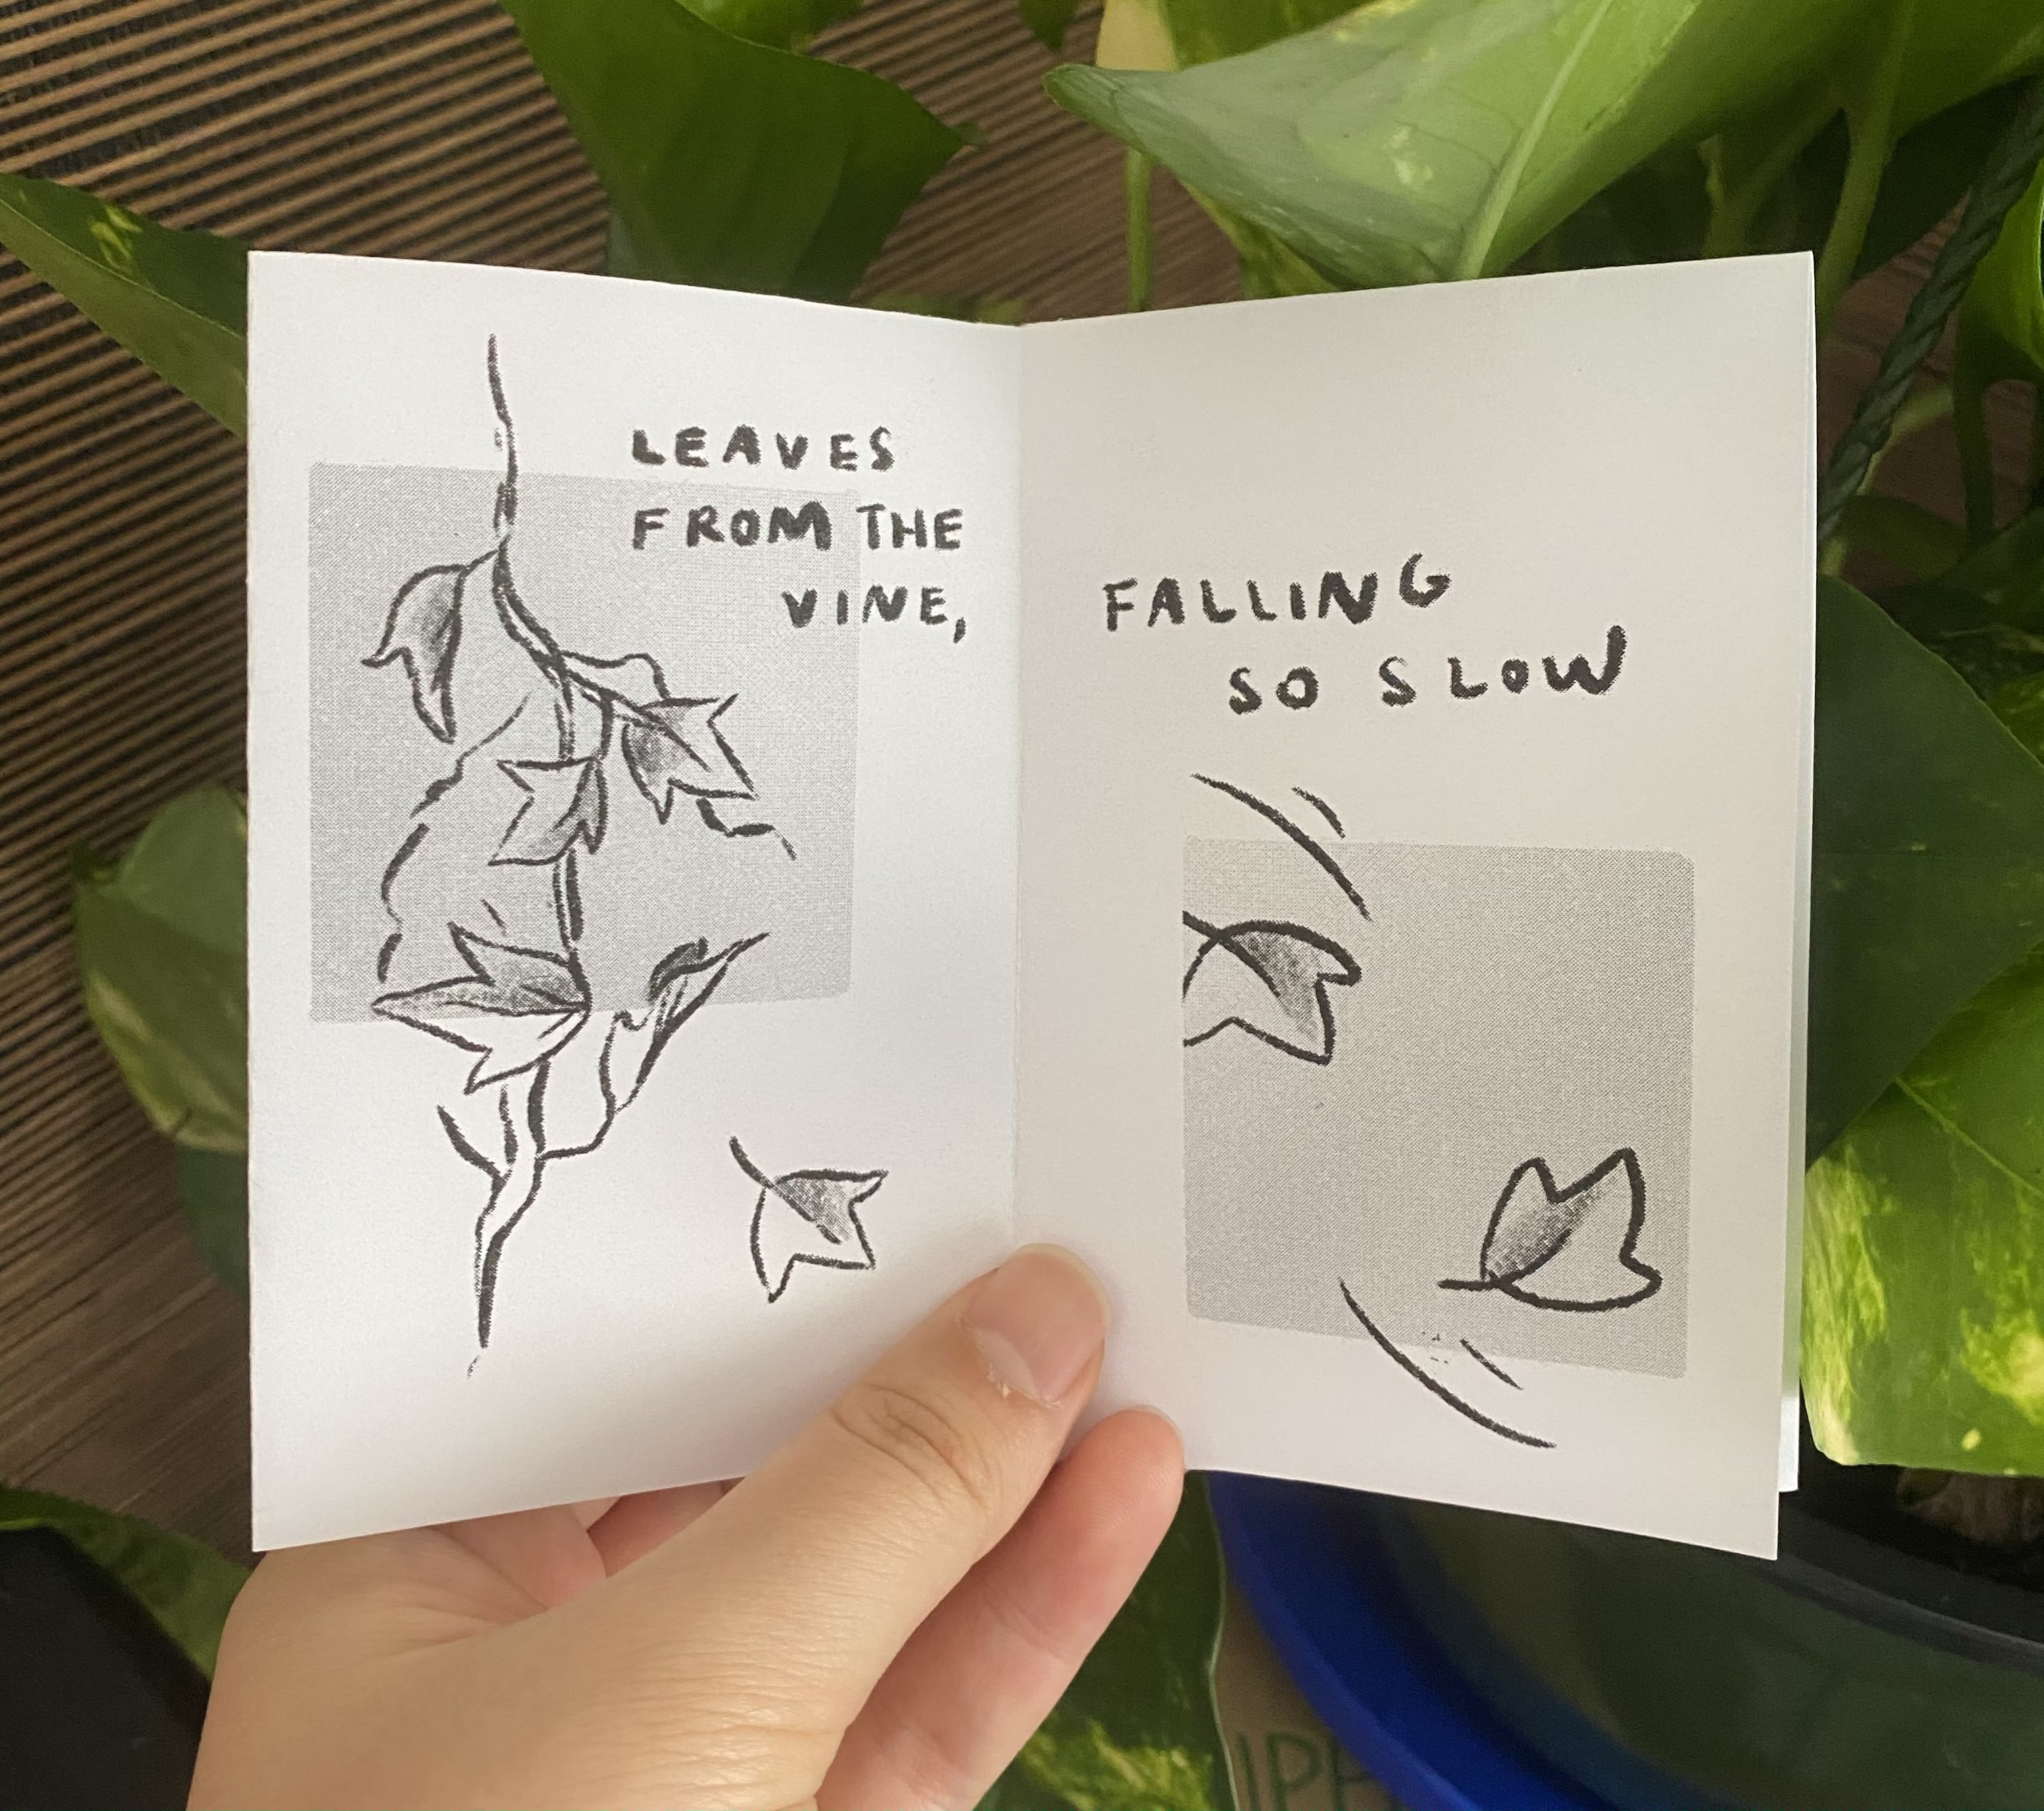 LEAVES
FROM THE
VINE,
FALLING
SO SLOW